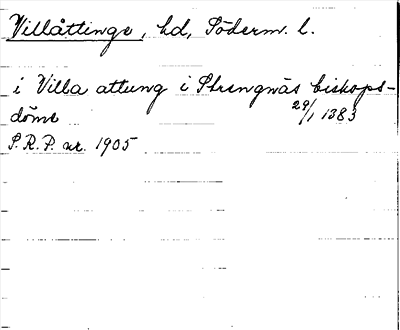 Villåttinge, hd, Söderm. l.
i Villa attung i Strengnäs biskops-
döme 29/1 1383
S.R.P. nr. 1905